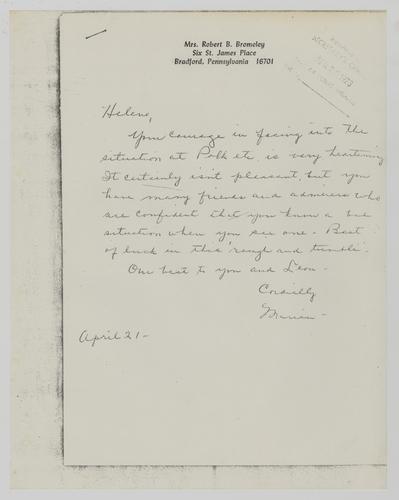 Mrs. Robert B. Bromeley
Six St. James Place
Bradford, Pennsylvania 16701
Helene,
Your courage in facing into the
situation at Polk etc. is very heartening.
It certainly isn't pleasant, but you
have many friends and admirers who
are confident that you know a bad
situation when you see one - Best
of luck in this "rough and tumble".
Our best to you and Leon -
Cordially
April 21 -